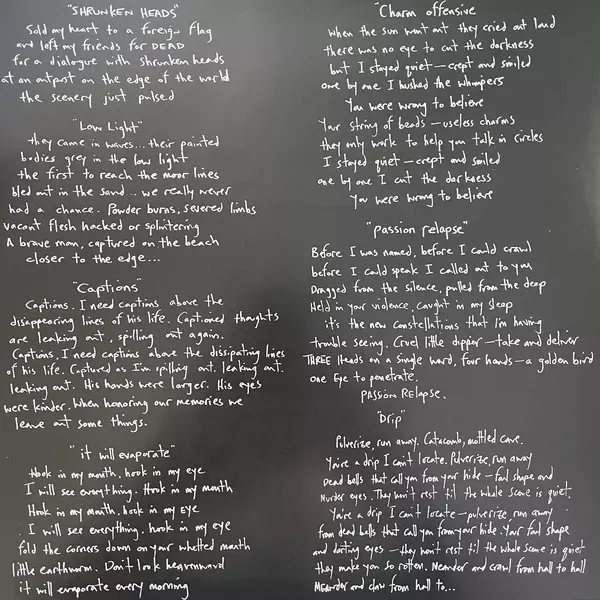 "SHRUNKEN HEADS"
Sold my heart to a foreign flag
and left my friends for DEAD
for a dialogue with shrunken heads
at an outpost on the edge of the world
the scenery just pulsed
"Low Light"
they came in waves... their painted
bodies grey in the low light
the first to reach the moor lines
bled out in the sand... we really never
had a chance. Powder burns, severed limbs
vacant flesh hacked or splintering
A brave man, captured on the beach
closer to the edge...
"Captions"
Captions. I need captions above the
disappearing lines of his life. Captioned thoughts
are leaking out, spilling out again.
Captions. I need captions above the dissipating lines
of his life. Captured as I'm spilling out. leaking out.
leaking out. His hands were larger. His eyes
were kinder. When honoring our memories we
leave out some things.
"it will evaporate"
Hook in my mouth, hook in my eye
I will see everything. Hook in my mouth
Hook in my mouth, hook in my eye
I will see everything, hook in my eye
fold the corners down on your whetted mouth
little earthworm. Don't look heavenward
it will evaporate every morning
"Charm offensive"
When the sun went out they cried out loud
there was no eye to cut the darkness
but I stayed quiet—crept and smiled
one by one I hushed the whimpers
You were wrong to believe
Your string of beads—useless charms
they only work to help you talk in circles
I stayed quiet—crept and smiled
one by one I cut the darkness
You were wrong to believe
"Passion relapse"
Before I was named, before I could crawl
before I could speak I called out to you
Dragged from the silence, pulled from the deep
Held in your violence, caught in my sleep
it's the new constellations that I'm having
trouble seeing. Cruel little dipper—take and deliver
THREE Heads on a single word, four hands—a golden bird
one Eye to penetrate.
PASSION RELAPSE.
"Drip"
Pulverize, run away. Catacomb, mottled cave.
You're a drip I can't locate. Pulverize, run away
Dead bells that call you from your hide—foul shape and
Murder eyes. They won't rest til the whole scene is quiet.
You're a drip I can't locate—pulverize, run away
from dead bells that call you from your hide. Your foul shape
and darting eyes—they won't rest til the whole scene is quiet
they make you so rotten. Meander and crawl from hall to hall
Meander and claw from hall to...